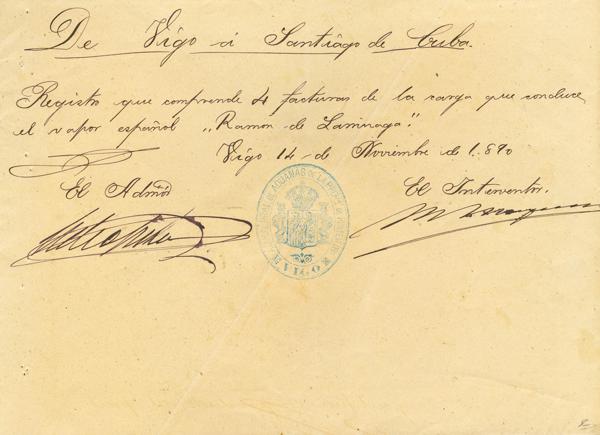 De Vigo á Santiago de Cuba.
Registro que comprende 4 facturas de la carga que conduce
el vapor español „Ramon de Larrinaga".
Vigo 14 de Noviembre de 1.890
El Admor
El Interventor.
ADUANAS DE LA PROV
VIGO